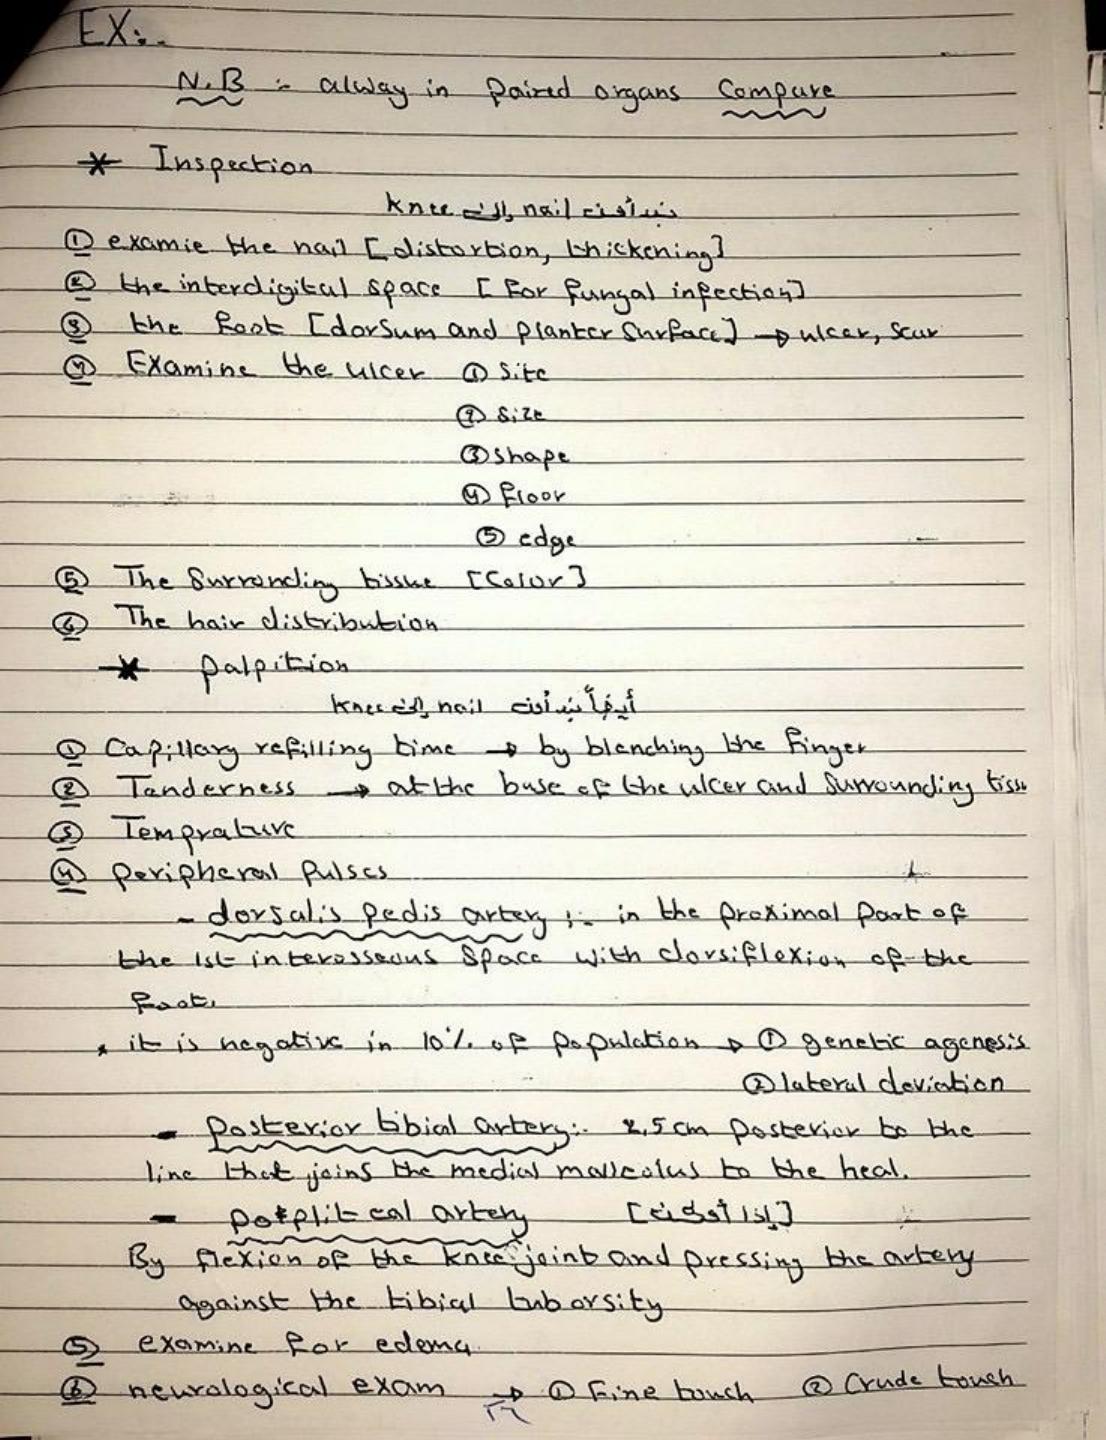 EX:-
N.B :- alway in paired organs Compare
* Inspection
نبدأ من nail إلى knee
① examie the nail [distortion, thickening]
② the interdigital space [for fungal infection]
③ the foot [dorsum and planter surface] → ulcer, scar
④ Examine the ulcer ① Site
② Size
③ shape
④ floor
⑤ edge
⑤ The Surronding tissue [Color]
⑥ The hair distribution
* palpition
أيضاً نبدأ من nail إلى knee
① Capillary refilling time → by blenching the finger
② Tanderness → at the base of the ulcer and Surrounding tissu
③ Temprature
④ peripheral pulses
- dorsalis pedis artery :- in the proximal part of
the 1st interosseous space with dorsiflexion of the
foot.
* it is negative in 10% of population → ① genetic agenesis
② lateral deviation
- posterior tibial artery:- 2,5 cm posterior to the
line that joins the medial malleolus to the heal.
- poplit cal artery [إذا أمكن]
By flexion of the knee joint and pressing the artery
against the tibial tuborsity
⑤ examine for edema
⑥ neurological exam → ① Fine touch ② Crude touch